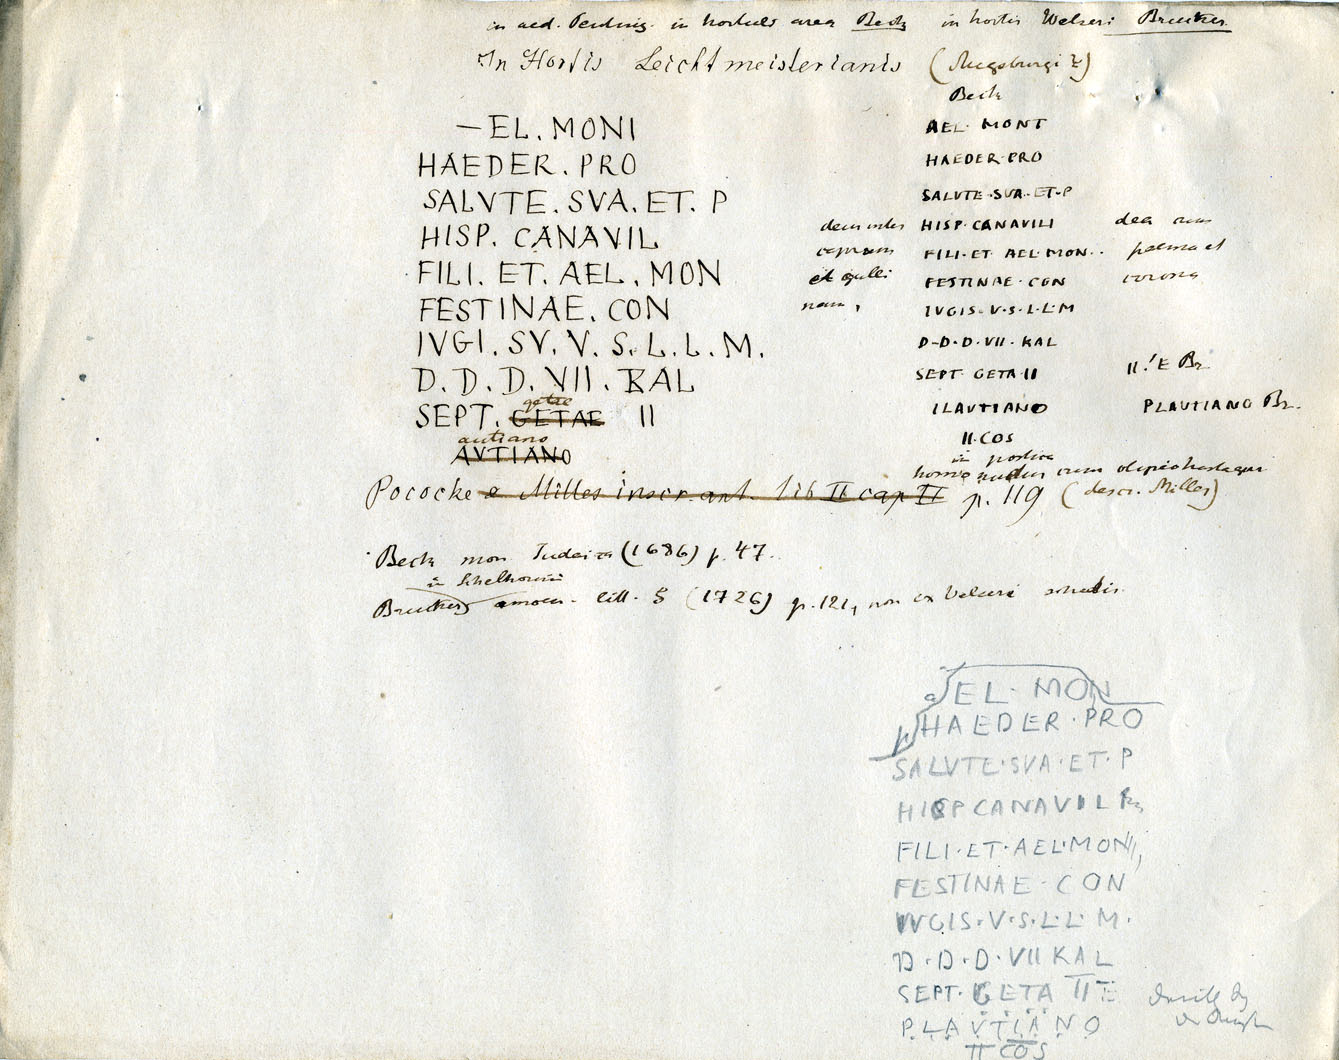 in aed. in area Beck in hortis Welseri Brucker
In Hortis Leichtmeisterianis (Augsburgi?)
—EL. MONI
HAEDER. PRO
SALVTE. SVA. ET. P
HISP. CANAVIL
FILI. ET. AEL. MON
FESTINAE. CON
IVGI. SV. V. S. L. L. M.
D. D. D. VII. KAL
getae
SEPT. GETAE II
autiano
AVTIANO
Beck
AEL. MONT
HAEDER·PRO
SALUTE·SUA·ET·P
HISP·CANAVILI
FILI·ET AEL·MON··
FESTINAE·CON
IVGIS·V·S·L·L·M
D-D-D·VII·KAL
SEPT GETA II
ILAUTIANO
II·COS
et galli
nam,
dea cum
palma et
corona
II! E Br.
PLAUTIANO Br.
in postica
homo nudus cum
Pococke e Milles inscr. ant. lib II cap II p. 119 (descr. Milles)
Beck mon Judaica (1686) p. 47.
in Schelhornii
Bruckeri amoen. litt. 5 (1726) p. 121, non ex Velseri schedis
a EL· MON
HAEDER·PRO
SALVTE·SVA·ET·P
HISP CANAVIL
FILI·ET·AEL·MON
FESTINAE·CON
IVGIS·V·S·L·L·M·
D·D·D·VII KAL
SEPT·GETA II E
PLAVTIANO
II COS